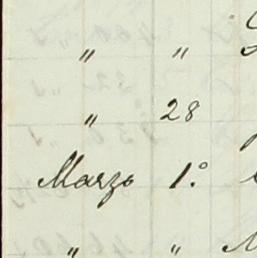 " "
" 28
Marzo 1.º
" "